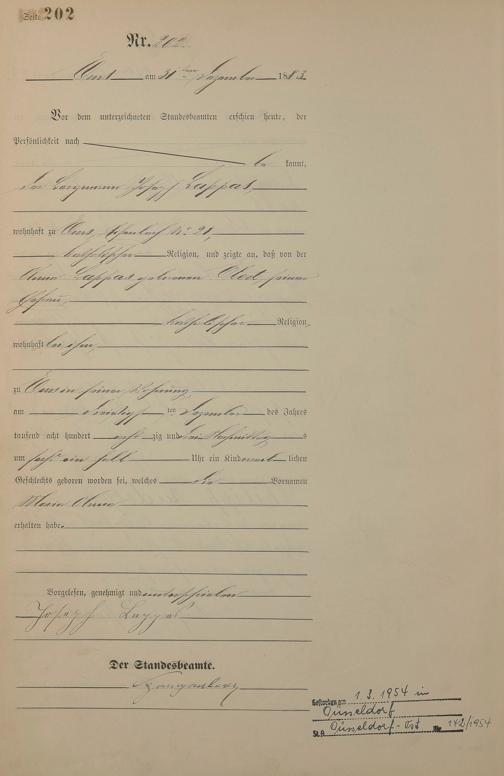 Seite 202
Nr. 202.
am 31 ten Dezember 1883
Vor dem unterzeichneten Standesbeamten erschien heute, der
Persönlichkeit nach
be kannt,
der Bergmann Joseph Lappas,
wohnhaft zu
katholischer Religion, und zeigte an, daß von der
Anna Lappas geborenen seiner
Ehefrau,
katholischer Religion,
wohnhaft bei ihm,
zu in seiner Wohnung
am ten Dezember des Jahres
tausend acht hundert acht zig und drei Nachmittags
um sechs ein halb Uhr ein Kind weib lichen
Geschlechts geboren worden sei, welches die Vornamen
Maria Anna
erhalten habe.
Vorgelesen, genehmigt und unterschrieben
Joseph Lappas
Der Standesbeamte.
Gestorben am 1.3.1954 in
Düsseldorf
St.A. Düsseldorf-Ost Nr. 142/1954